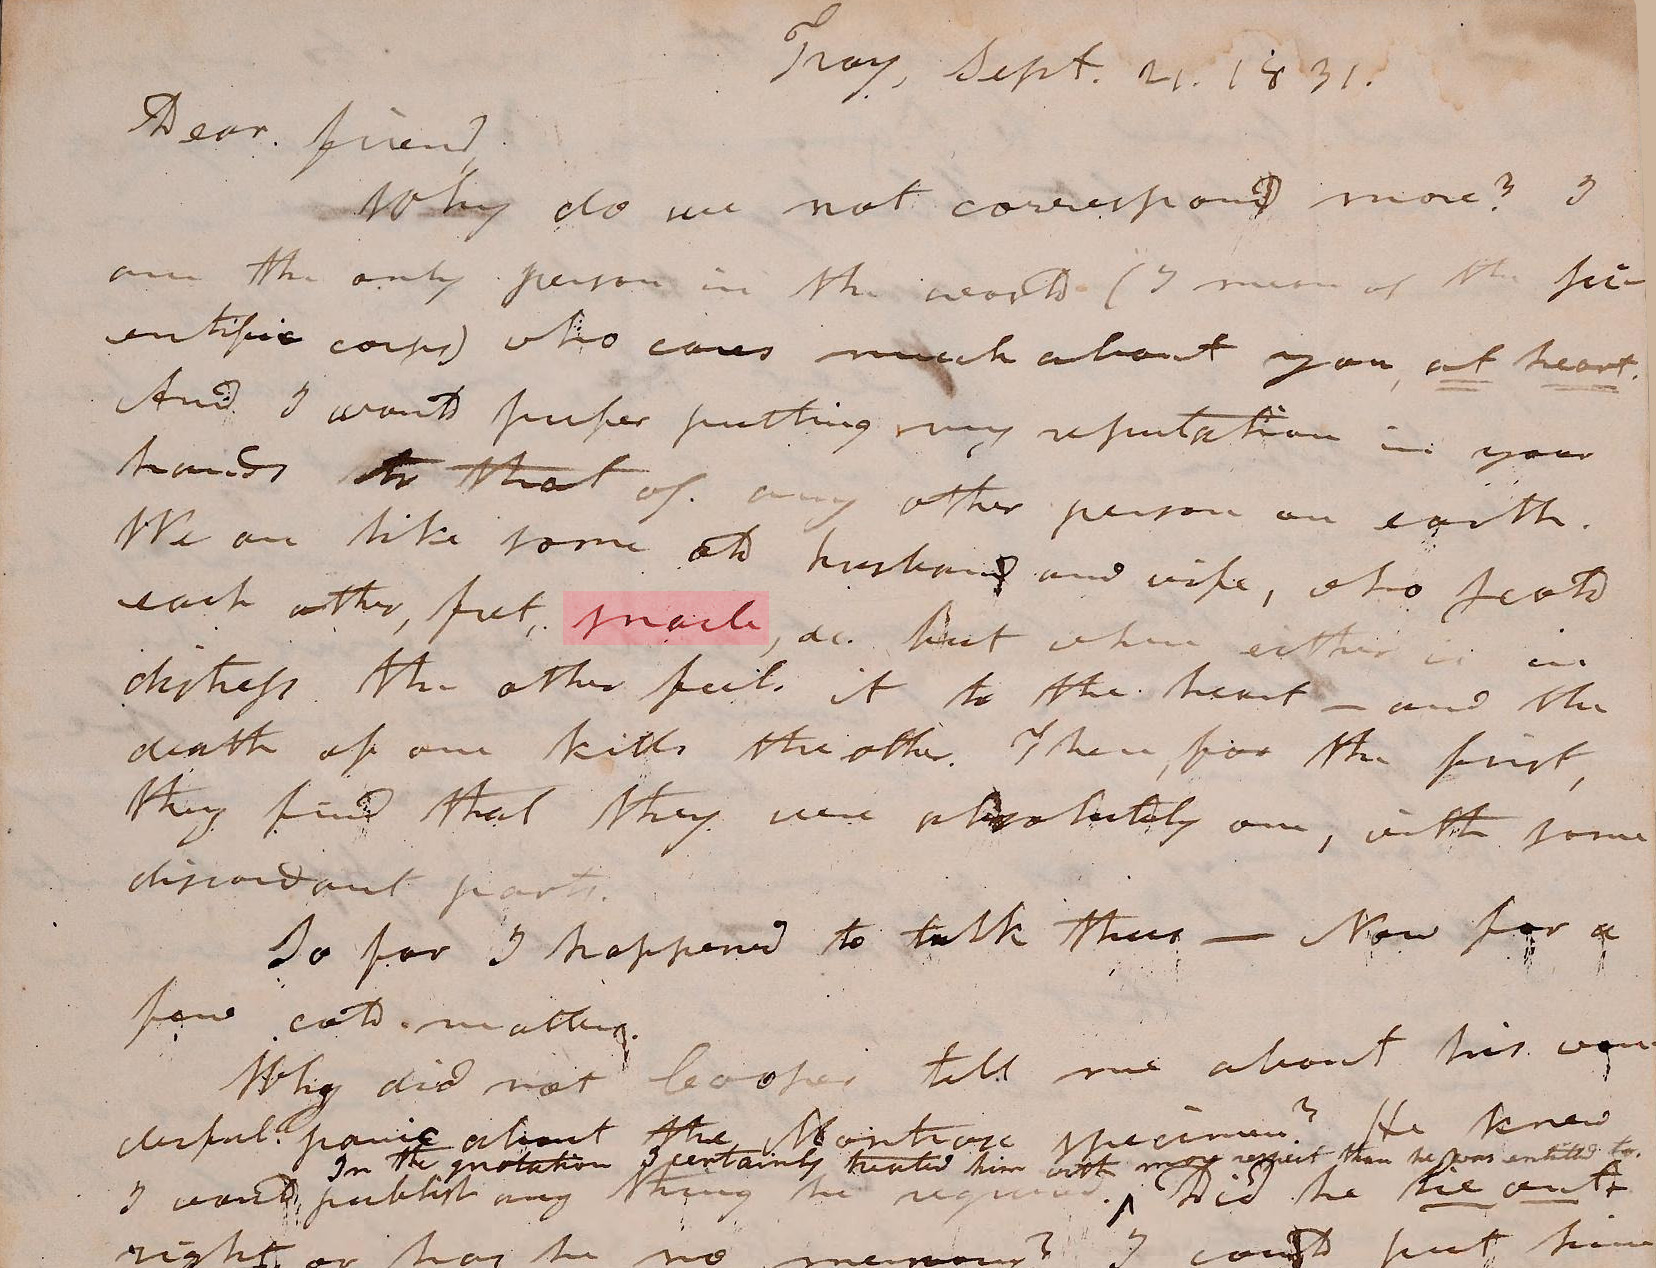 Troy, Sept. 21. 1831.
Dear friend,
Why do we not correspond more? I
am the only person in the world (I mean of the sci-
entific corps) who cares much about you, at heart.
And I would prefer putting my reputation in your
hands to that of any other person on earth.
We are like some old husband and wife, who scold
each other, fret, snarl, &c. But when either is in
distress the other feels it to the heart — and the
death of one kills the other. Then, for the first,
they find that they were absolutely one, with some
discordant parts.
So far I happened to talk thus — Now for a
few cold matters.
Why did not Cooper tell me about his won-
derful panic about the Montrose specimen? He knew
In the quotation I certainly treated him with more respect than he was entitled to.
I would publish any thing he required. ^ Did he lie out-
right, or has he no memory? I could put him